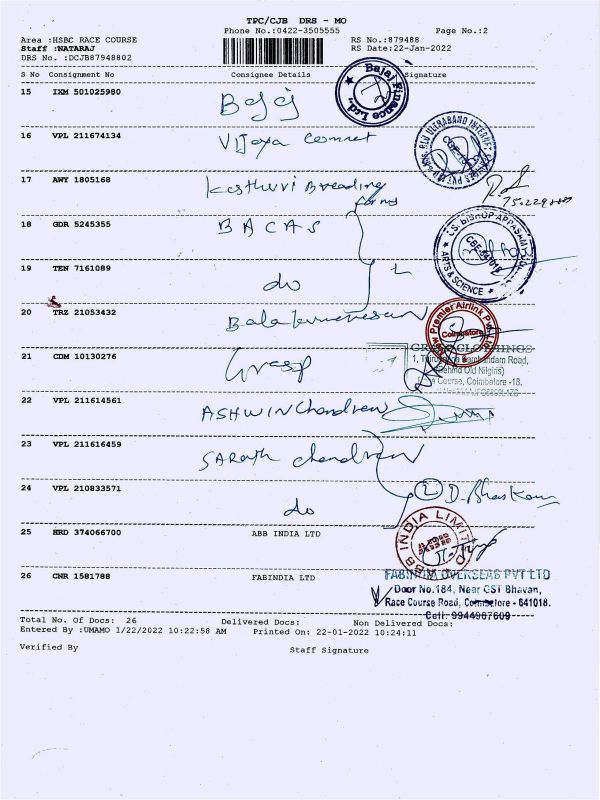 TPC/CJB DRS - MO
Phone No.:0422-3505555 Page No.:2
Area :HSBC RACE COURSE RS No.:879488
Staff :NATARAJ RS Date:22-Jan-2022
DRS No. :DCJB87948802
S No Consignment No Consignee Details Signature
15 IXM 501025980 Bajaj
Bajaj Finance Ltd.,
16 VPL 211674134 Vijaya Comnet
17 AWY 1805168 Kasthuri Breading
farms
18 GDR 5245355 BACAS
C.S. BISHOP APPASAMY
CBE-641018
ARTS & SCIENCE
19 TEN 7161089 do
20 TRZ 21053432 Balakumaresan
Premier Airlink Pvt Ltd
Coimbatore
21 CDM 10130276 Grasp
(Behind Old Nilgiris)
Course, Coimbatore -18.
22 VPL 211614561 ASHWIN Chandran
23 VPL 211616459 SARATH chandran
24 VPL 210833571 do
2 D. Bhaskaran
25 HRD 374066700 ABB INDIA LTD
ABB INDIA LIMITED
26 CNR 1581788 FABINDIA LTD
OVERSEAS PVT LTD
Door No.184, Near CST Bhavan,
Race Course Road, Coimbatore - 641018.
Cell: 9944967609
Total No. Of Docs: 26 Delivered Docs: Non Delivered Docs:
Entered By :UMAMO 1/22/2022 10:22:58 AM Printed On: 22-01-2022 10:24:11
Verified By Staff Signature